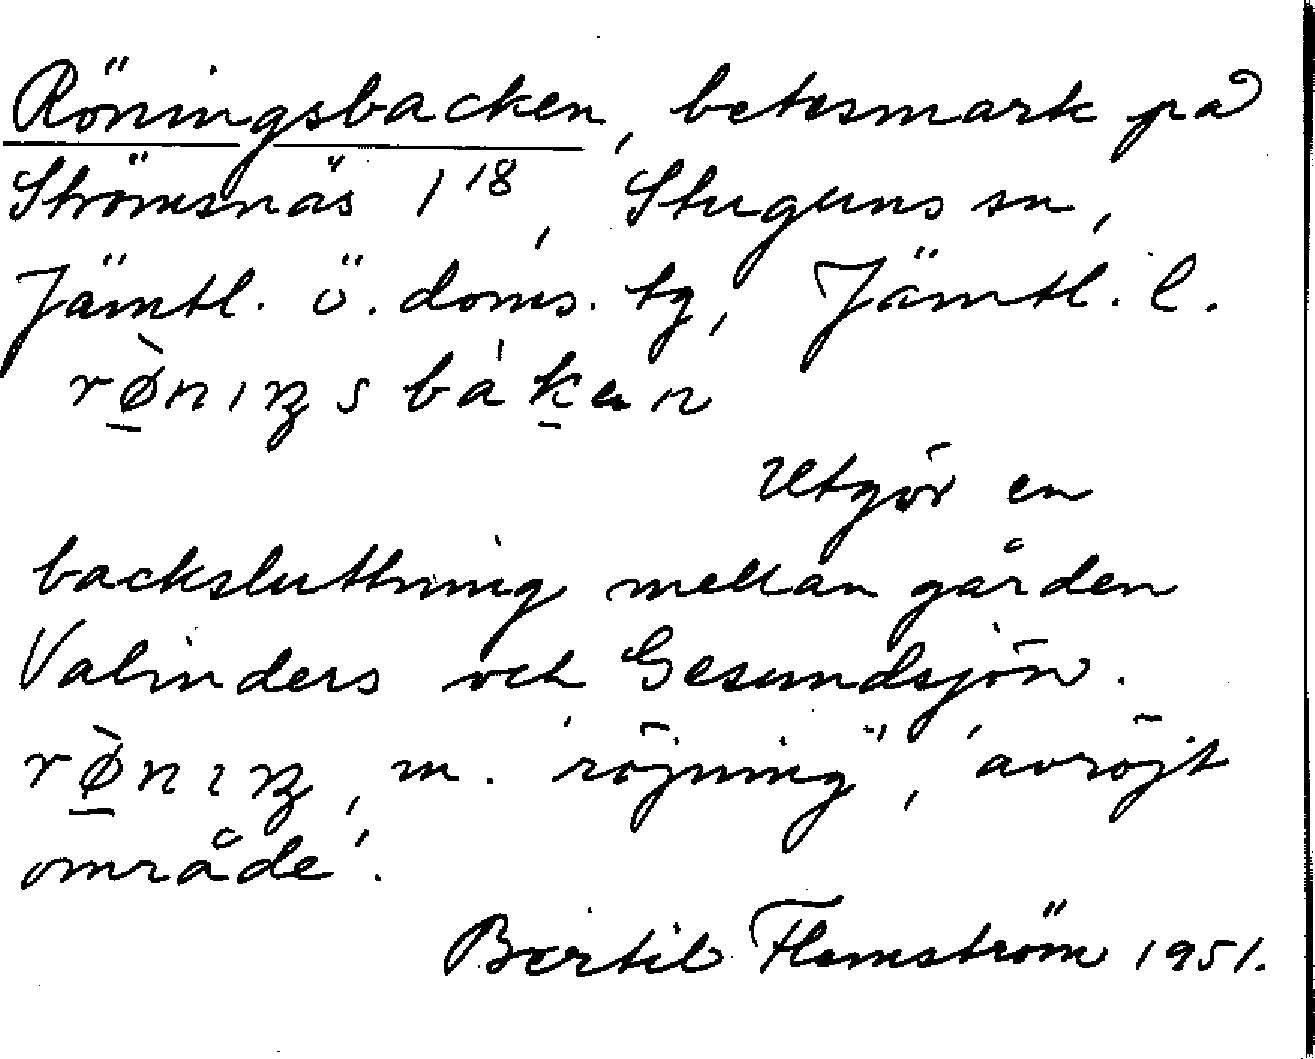 Röningsbacken, betesmark på
Strömsnäs 1¹⁸, Stuguns sn,
Jämtl. ö. doms. tg, Jämtl. l.
rø̠̀nıŋsbák̠ɐn
Utgör en
backsluttning mellan gården
Valinders och Gesundsjön.
rø̠̀nıŋ, m. 'röjning', 'avröjt
område'.
Bertil Flemström 1951.